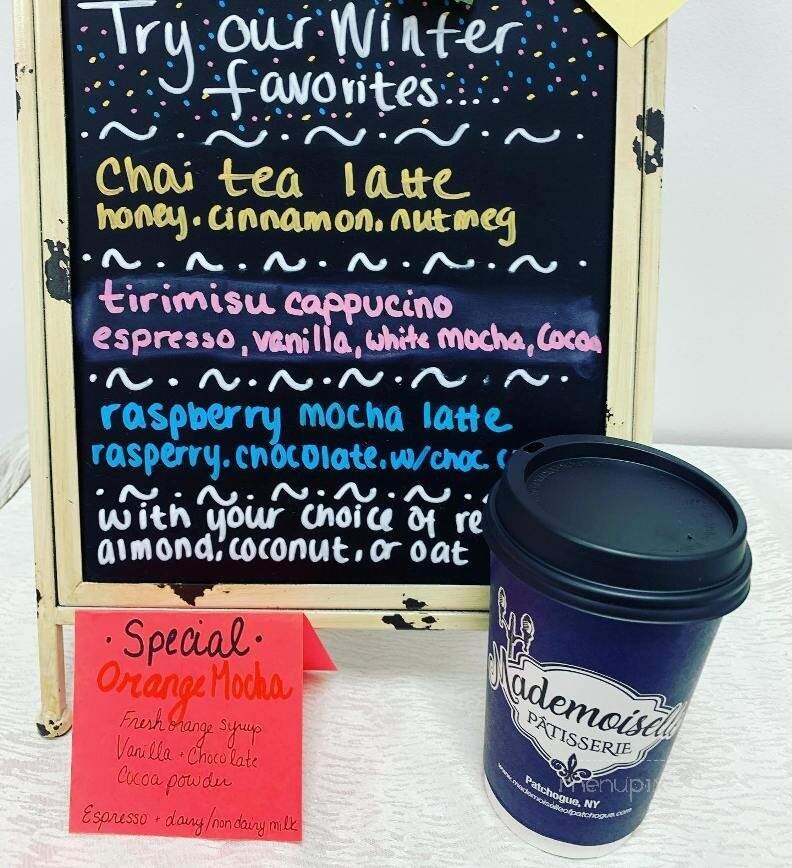 Try our Winter
favorites....
Chai tea latte
honey.cinnamon.nutmeg
tirimisu cappucino
espresso, vanilla, white mocha, Cocoa
raspberry mocha latte
rasperry.chocolate.w/choc.
with your choice of
almond.coconut.or oat
·Special·
Orange Mocha
Fresh orange syrup
Vanilla + Chocolate
Cocoa powder
Espresso + dairy/non dairy milk
Mademoiselle
PÂTISSERIE
Patchogue, NY
www.mademoiselleofpatchogue.com
menupix